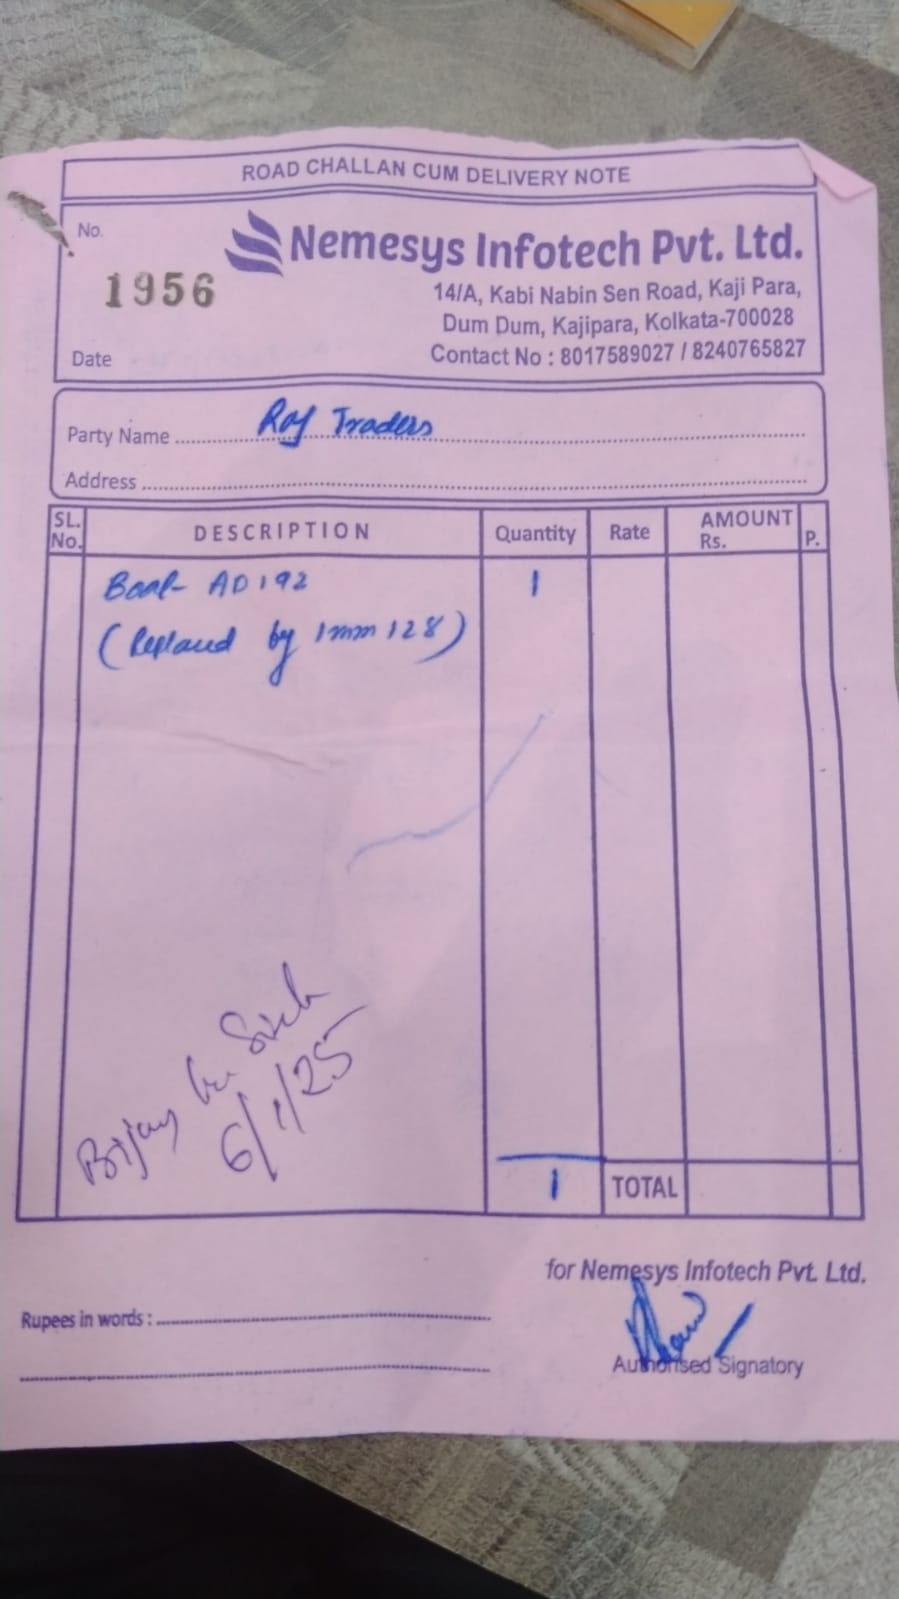 ROAD CHALLAN CUM DELIVERY NOTE
No.
1956
Nemesys Infotech Pvt. Ltd.
14/A, Kabi Nabin Sen Road, Kaji Para,
Dum Dum, Kajipara, Kolkata-700028
Contact No : 8017589027 / 8240765827
Date
Party Name Raj Traders
Address
SL. No. DESCRIPTION Quantity Rate AMOUNT Rs. P.
AD192 1
(Replaced by 1mm128)
6/1/25
1 TOTAL
for Nemesys Infotech Pvt. Ltd.
Rupees in words :
Authorised Signatory